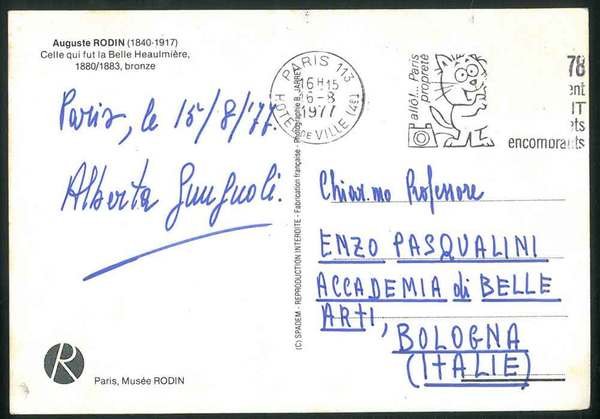 Auguste RODIN (1840-1917)
Celle qui fut la Belle Heaulmière,
1880/1883, bronze
Paris, le 15/8/77.
Alberta
PARIS 113
16H15
6-8
1977
HÔTEL DE VILLE (4E)
allô!... Paris
propreté
78
ent
IT
ets
encombrants
(C) SPADEM - REPRODUCTION INTERDITE - Fabrication française - Photographie B. JARRET
Chiar.mo Professore
ENZO PASQUALINI
ACCADEMIA di BELLE
ARTI,
BOLOGNA
(ITALIE)
R
Paris, Musée RODIN